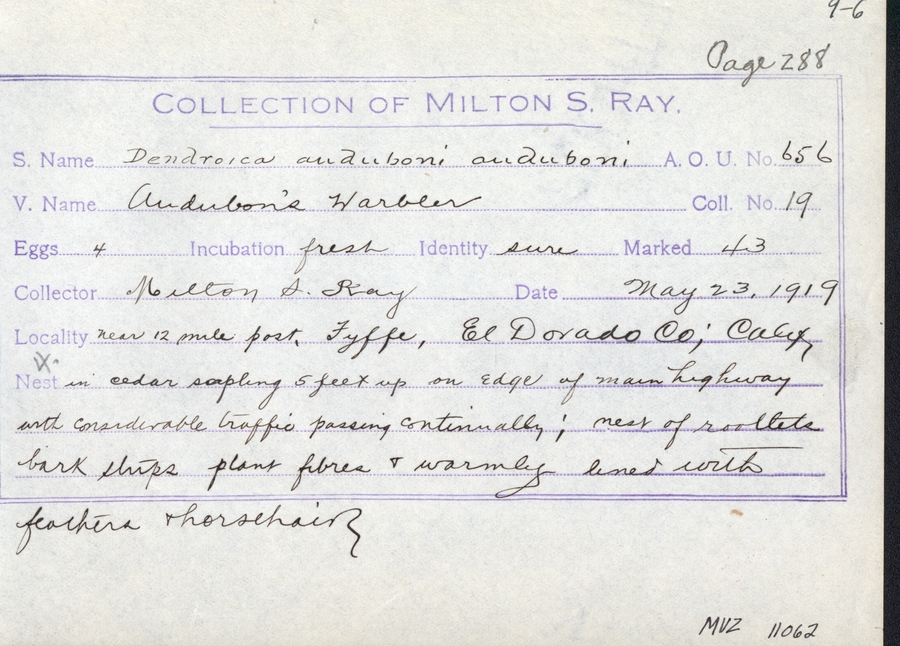 9-6
Page 288
COLLECTION OF MILTON S. RAY.
S. Name Dendroica auduboni auduboni A. O. U. No. 656
V. Name Audubon's Warbler Coll. No. 19
Eggs 4 Incubation fresh Identity sure Marked 43
Collector Milton S. Ray Date May 23, 1919
Locality near 12 mile post, Fyffe, El Dorado Co; Calif,
X.
Nest in cedar sapling 5 feet up on edge of main highway
with considerable traffic passing continually; nest of rootlets
bark strips plant fibres & warmly lined with
feathers & horsehair
MVZ 11062